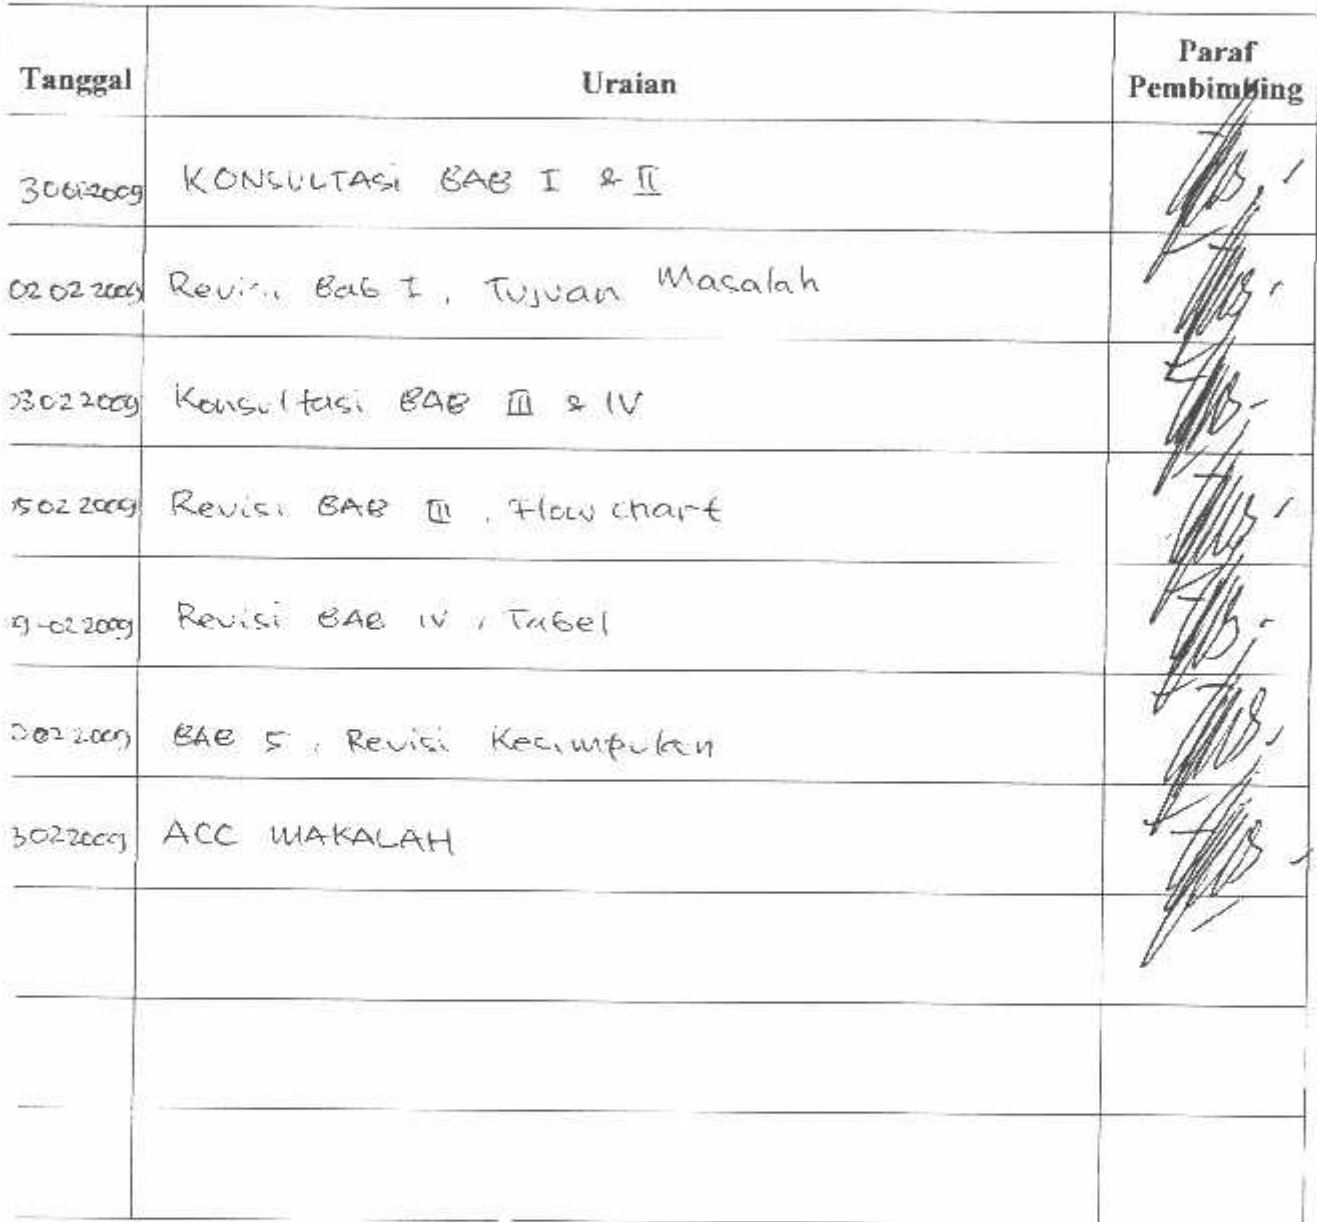 Tanggal Uraian Paraf Pembimbing
KONSULTASI BAB I & II
02 02 2009 Revisi Bab I, Tujuan Masalah
03022009 Konsultasi BAB III & IV
5022009 Revisi BAB III, Flowchart
9-022009 Revisi BAB IV, Tabel
BAB 5, Revisi Kesimpulan
3022009 ACC MAKALAH